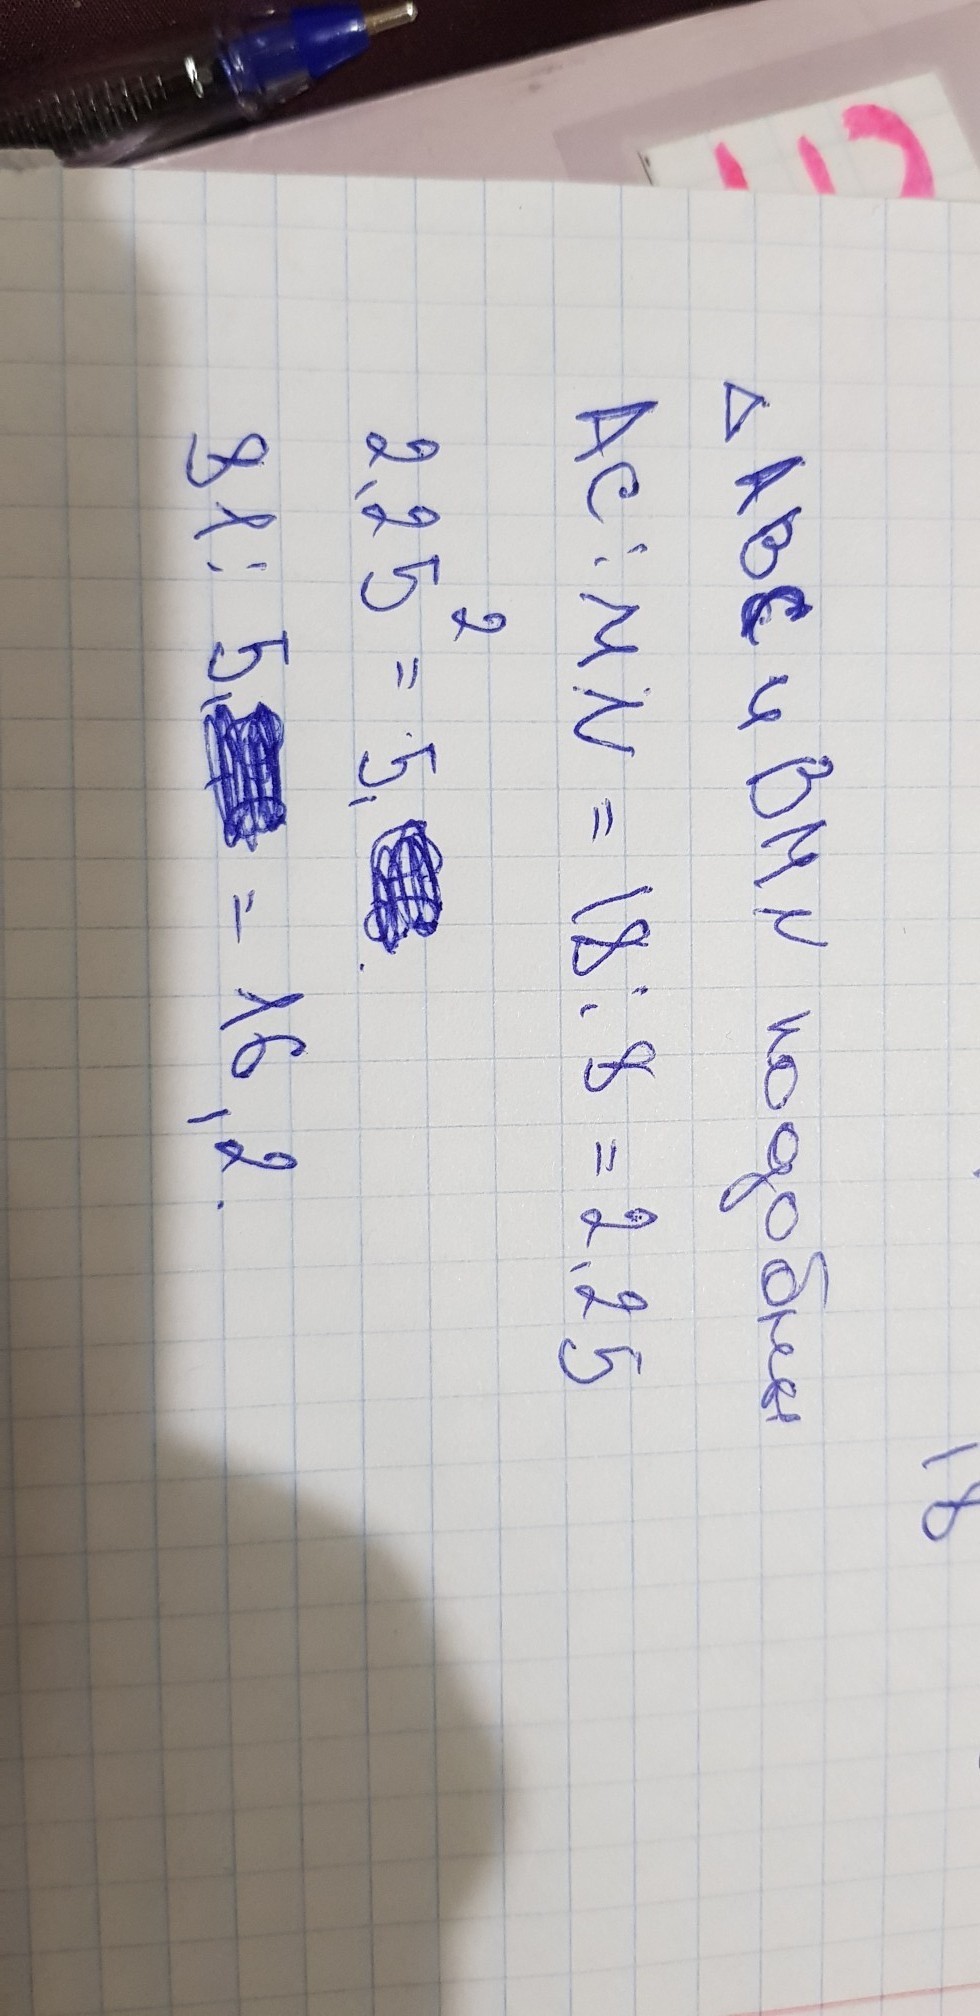 18
△ ABC и BMN подобны
AC : MN = 18 : 8 = 2,25
2,25² = 5,
81 : 5, = 16,2.